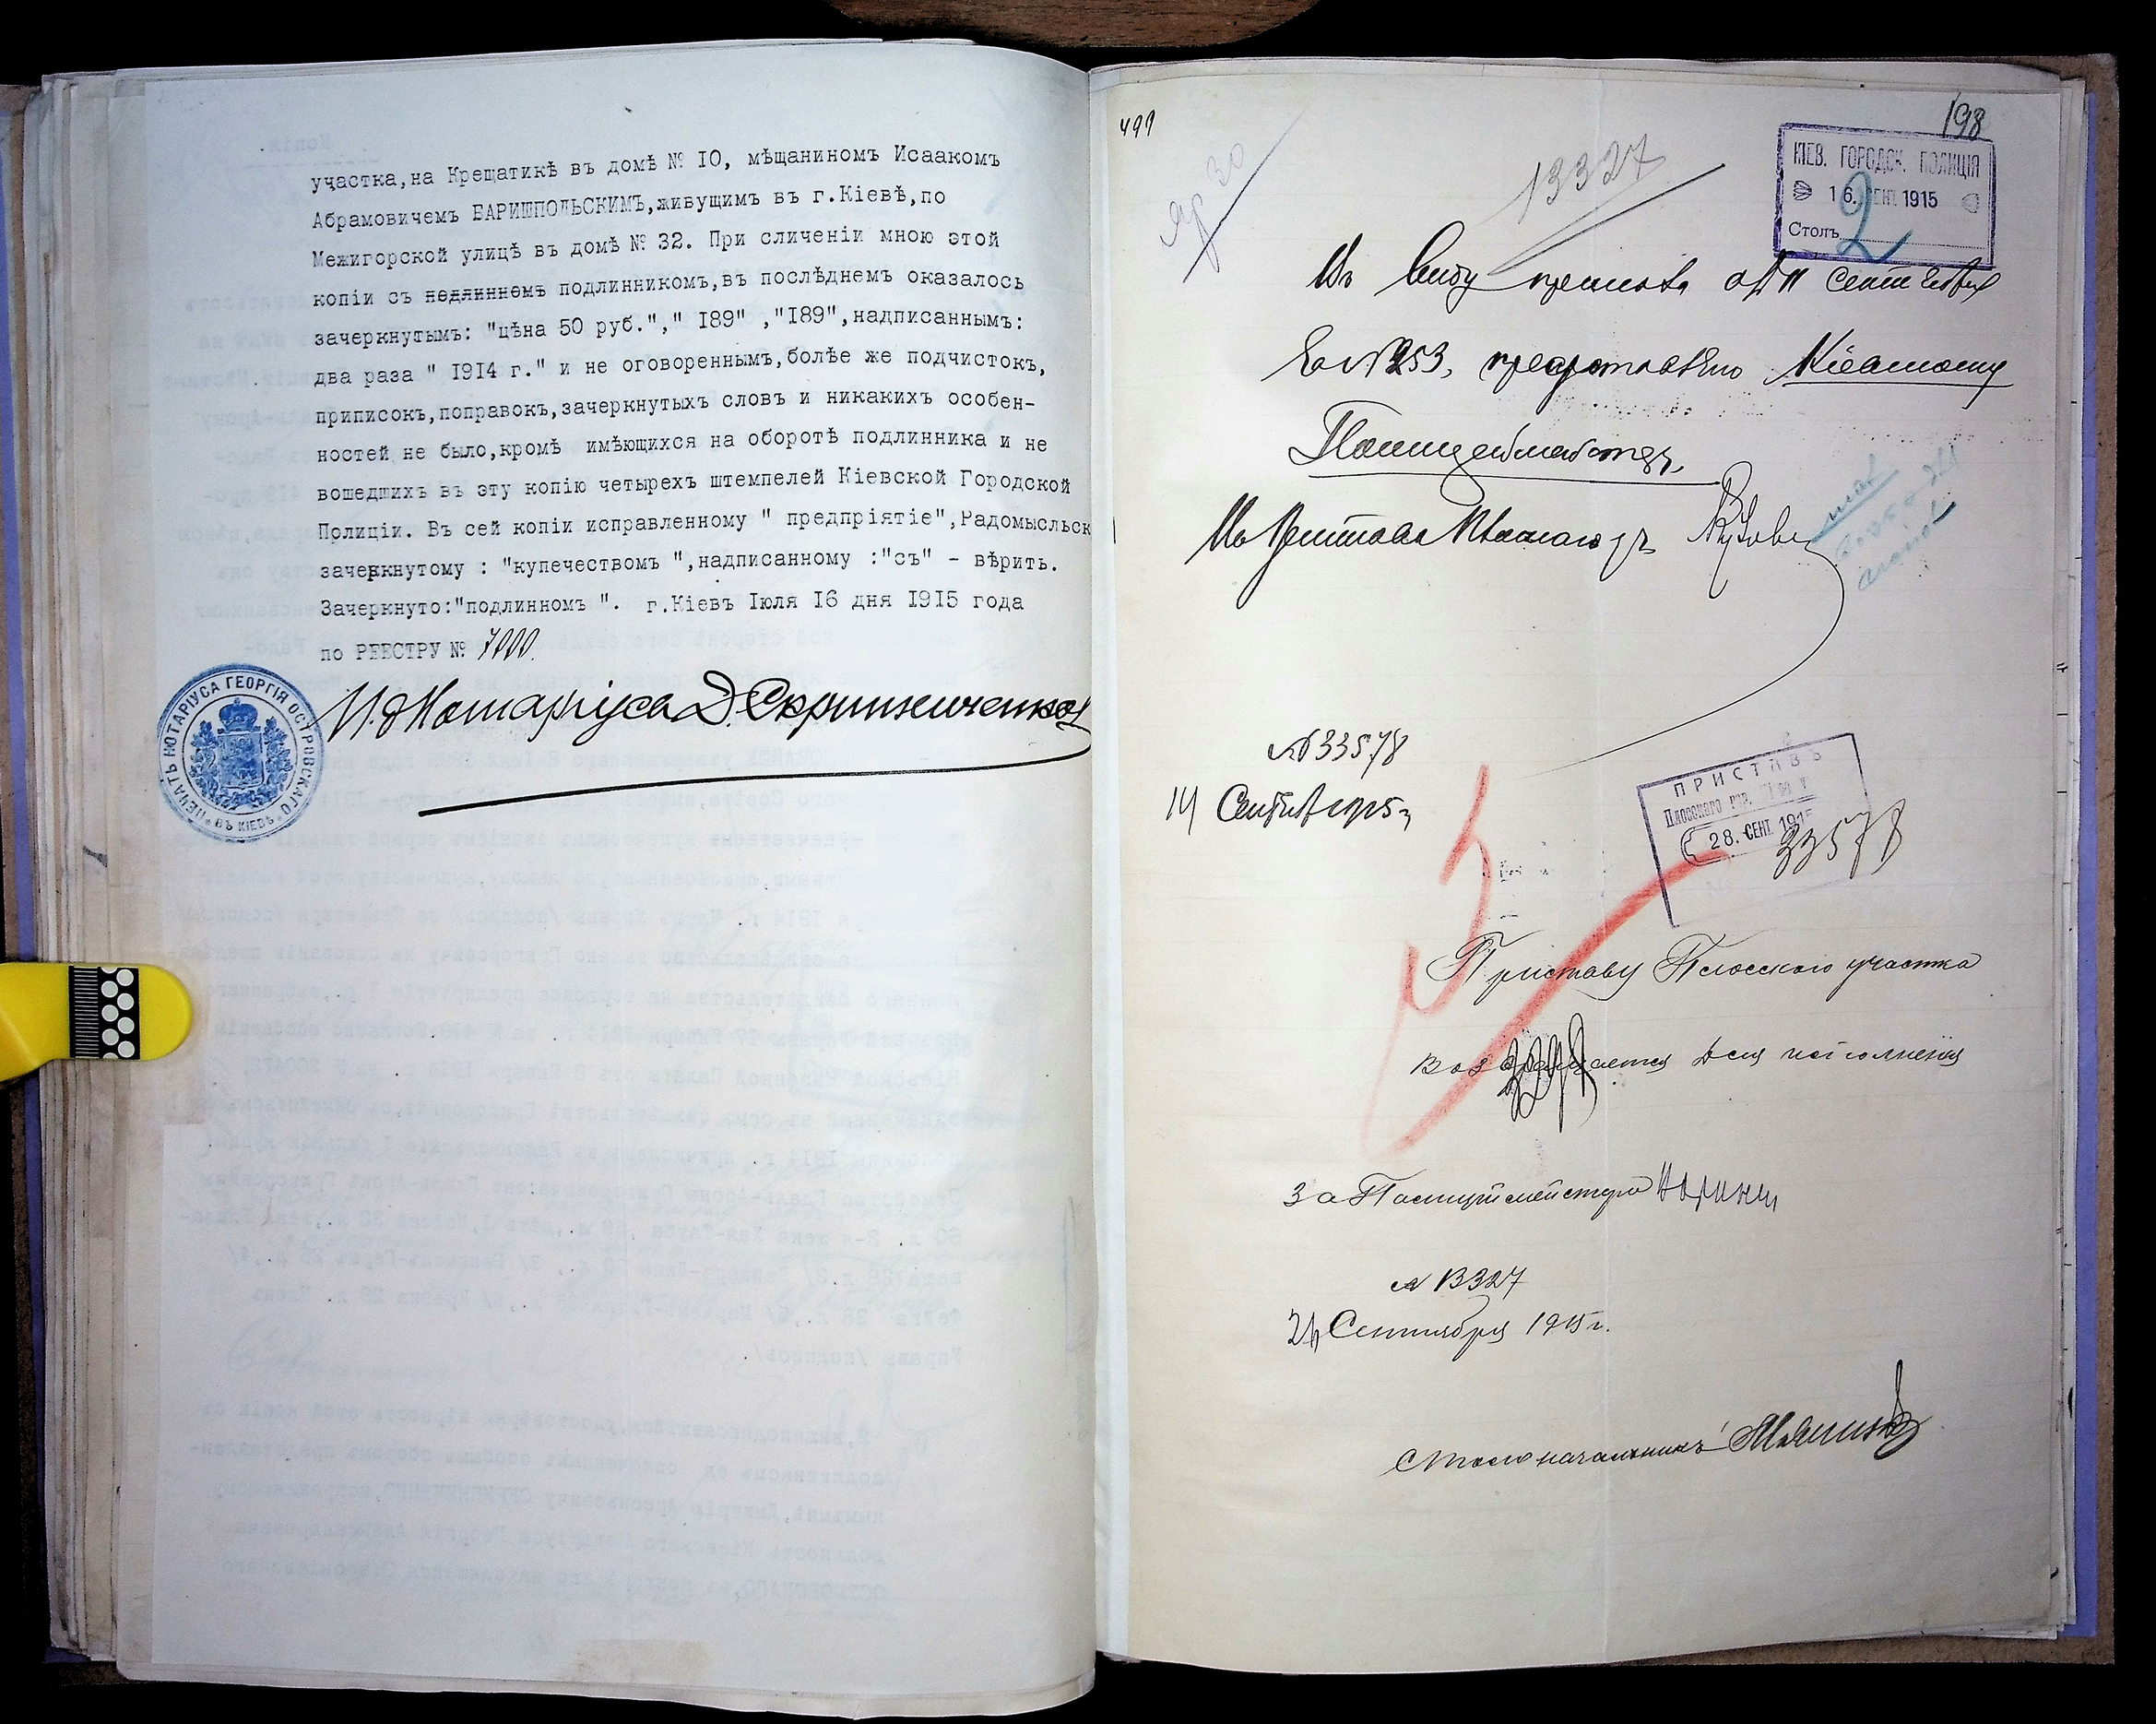 участка,на Крещатикѣ въ домѣ № IO, мѣщаниномъ Исаакомъ
Абрамовичемъ БАРИШПОЛЬСКИМЪ,живущимъ въ г.Кіевѣ,по
Межигорской улицѣ въ домѣ № 32. При сличеніи мною этой
копіи съ подлинномъ подлинникомъ,въ послѣднемъ оказалось
зачеркнутымъ: "цѣна 50 руб."," I89" ,"I89",надписаннымъ:
два раза " I9I4 г." и не оговореннымъ,болѣе же подчистокъ,
приписокъ,поправокъ,зачеркнутыхъ словъ и никакихъ особен-
ностей не было,кромѣ имѣющихся на оборотѣ подлинника и не
вошедшихъ въ эту копію четырехъ штемпелей Кіевской Городской
Полиціи. Въ сей копіи исправленному " предпріятіе",Радомысльск
зачеркнутому : "купечествомъ ",надписанному :"съ" - вѣрить.
Зачеркнуто:"подлинномъ ". г.Кіевъ Iюля I6 дня I9I5 года
по РЕЕСТРУ № 7000.
И.д Нотаріуса Д. Скрипниченко
ПЕЧАТЬ НОТАРІУСА ГЕОРГІЯ ОСТРОВСКАГО
ВЪ КІЕВѢ
499
198
13327
КІЕВ. ГОРОДСК. ПОЛИЦІЯ
16. СЕН. 1915
Столъ 2
Въ виду
за № 253, представляю Кіевскому
Полицеймейстеру
№ 33578
14 Сентября 1915 г.
ПРИСТАВЪ
Плоскаго
28. СЕНТ. 1915
33578
Приставу Плосскаго участка
возвращается для исполненія
За Полицеймейстера
№ 13327
Сентября 1915 г.
Столоначальникъ